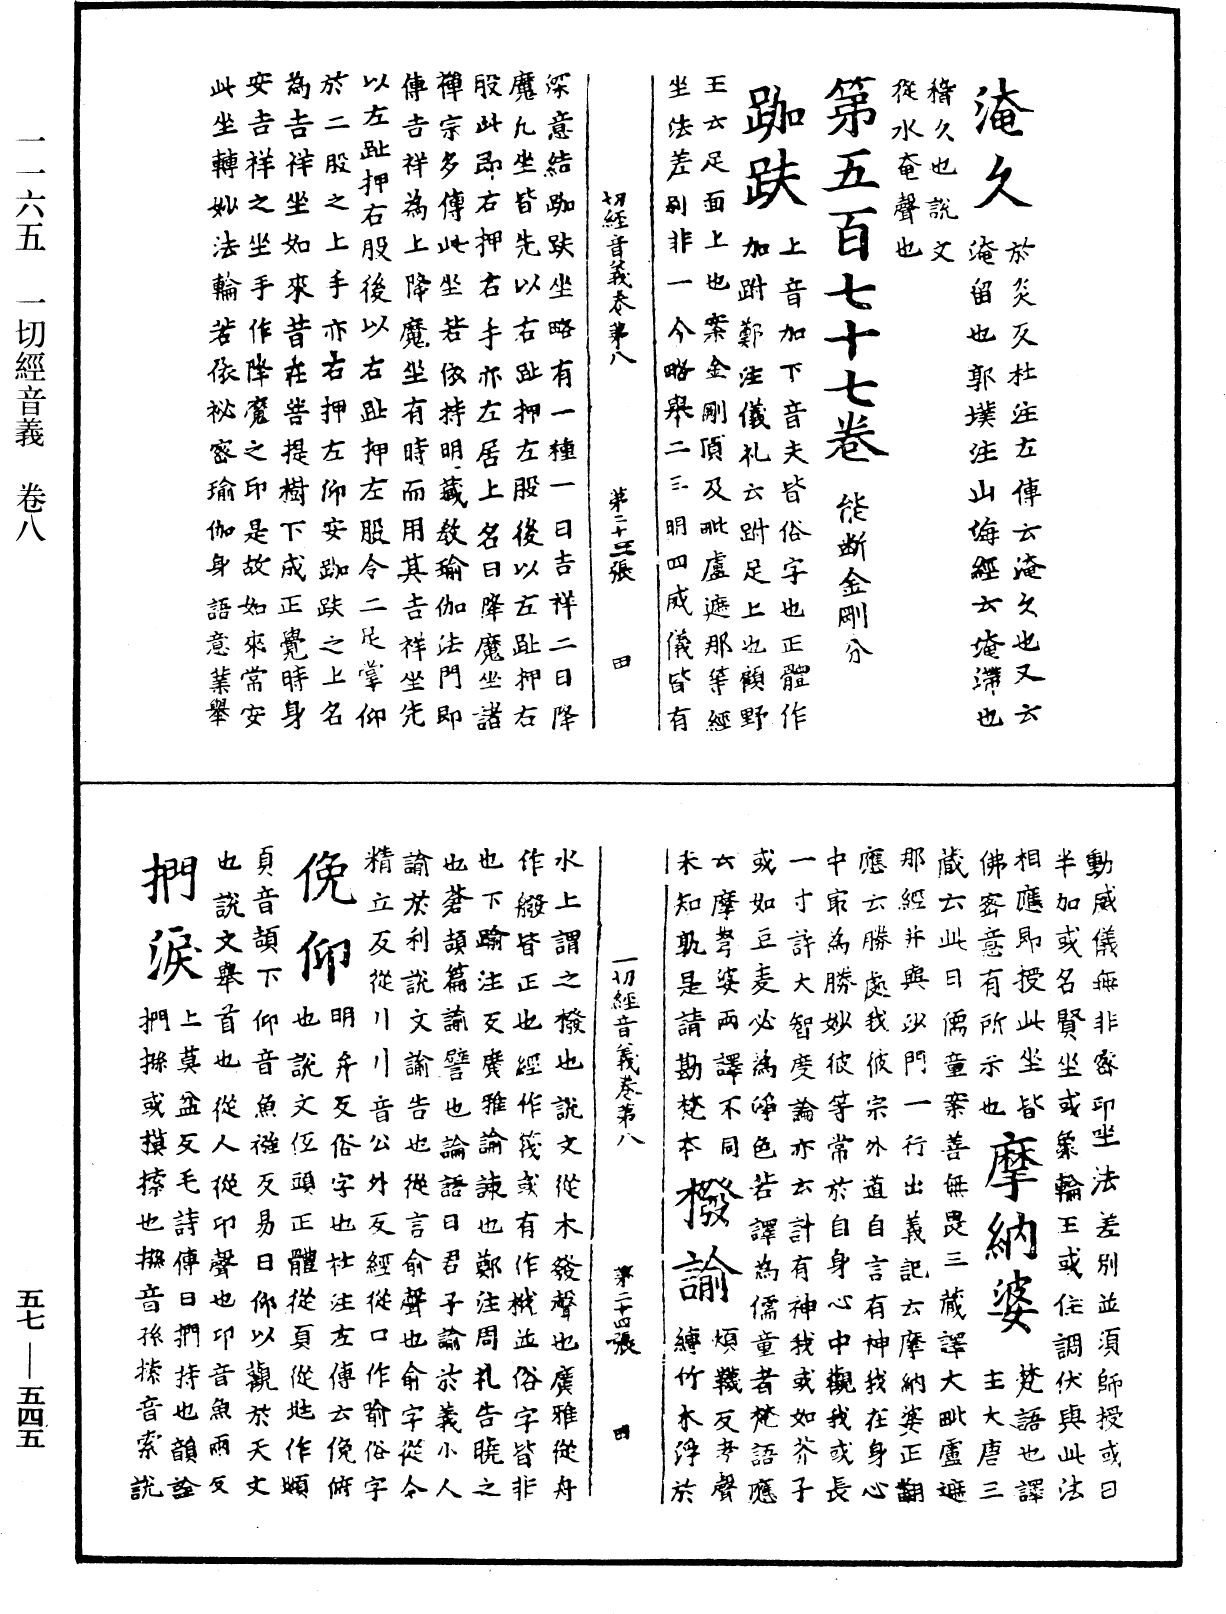 一一六五　一切經音義　卷八
五七—五四五
淹久　於炎反杜注左傳云淹久也又云
淹留也郭璞注山海經云淹滯也
稽久也說文
從水奄聲也
第五百七十七卷　能斷金剛分
跏趺　上音加下音夫皆俗字也正體作
加跗鄭注儀礼云跗足上也顧野
王云足面上也案金剛頂及毗盧遮那等經
坐法差別非一今略舉二三明四威儀皆有
切經音義卷第八　第二十三張　田
深意結跏趺坐略有一種一曰吉祥二曰降
魔凡坐皆先以右趾押左股後以左趾押右
股此即右押右手亦左居上名曰降魔坐諸
禪宗多傳此坐若依持明藏教瑜伽法門即
傳吉祥為上降魔坐有時而用其吉祥坐先
以左趾押右股後以右趾押左股令二足掌仰
於二股之上手亦右押左仰安跏趺之上名
為吉祥坐如來昔在菩提樹下成正覺時身
安吉祥之坐手作降魔之印是故如來常安
此坐轉妙法輪若依祕密瑜伽身語意業舉
動威儀無非密印坐法差別並須師授或曰
半加或名賢坐或象輪王或住調伏與此法
相應即授此坐皆
佛密意有所示也
摩納婆　梵語也譯
主大唐三
藏云此曰儒童案善無畏三藏譯大毗盧遮
那經并與沙門一行出義記云摩納婆正翻
應云勝處我彼宗外道自言有神我在身心
中取為勝妙彼等常於自身心中觀我或長
一寸許大智度論亦云計有神我或如芥子
或如豆麦必為淨色若譯為儒童者梵語應
云摩拏婆兩譯不同
未知孰是請勘梵本
橃諭　煩韈反考聲
縛竹木浮於
一切經音義卷第八　第二十四張　田
水上謂之橃也說文從木發聲也廣雅從舟
作艐皆正也經作筏或有作栰並俗字皆非
也下踰注反廣雅諭諫也鄭注周礼告曉之
也蒼頡篇諭譬也論語曰君子諭於義小人
諭於利說文諭告也從言俞聲也俞字從亼
精立反從巜巜音公外反經從口作喻俗字
俛仰　明弁反俗字也杜注左傳云俛俯
也說文伍頭正體從頁從逃作頫
頁音頡下仰音魚襁反易曰仰以觀於天文
也說文舉首也從人從卬聲也卬音魚兩反
捫淚　上莫盆反毛詩傳曰捫持也韻詮
捫搎或摸㨞也搎音孫㨞音索說